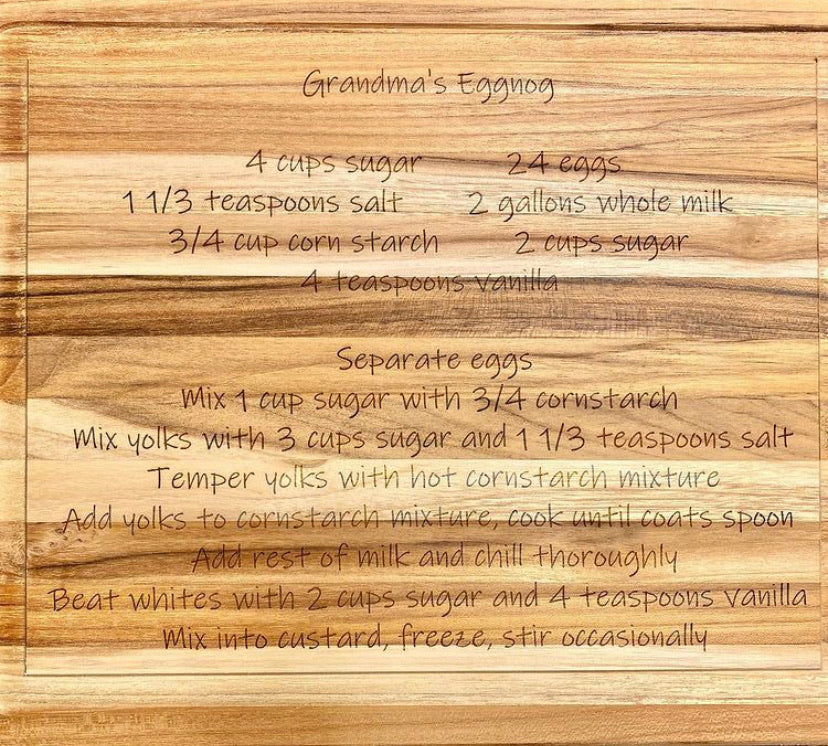 Grandma's Eggnog
4 cups sugar 24 eggs
1 1/3 teaspoons salt 2 gallons whole milk
3/4 cup corn starch 2 cups sugar
4 teaspoons vanilla
Separate eggs
Mix 1 cup sugar with 3/4 cornstarch
Mix yolks with 3 cups sugar and 1 1/3 teaspoons salt
Temper yolks with hot cornstarch mixture
Add yolks to cornstarch mixture, cook until coats spoon
Add rest of milk and chill thoroughly
Beat whites with 2 cups sugar and 4 teaspoons vanilla
Mix into custard, freeze, stir occasionally